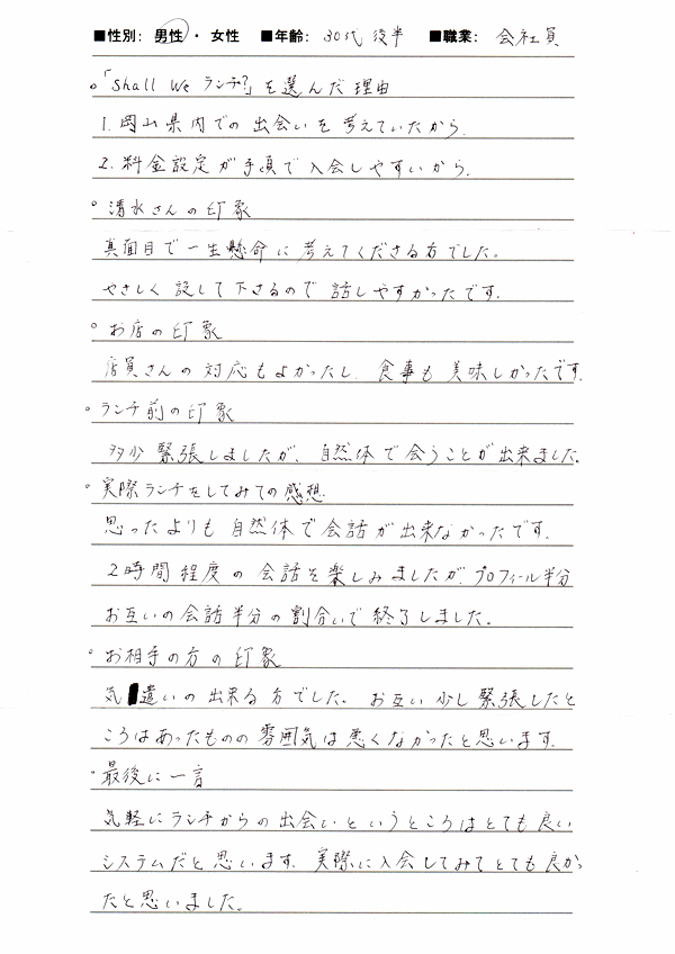 ■性別: 男性・女性 ■年齢: 30代後半 ■職業: 会社員
。「Shall We ランチ?」を選んだ理由
1. 岡山県内での出会いを考えていたから。
2. 料金設定が手頃で入会しやすいから。
。清水さんの印象
真面目で一生懸命に考えてくださる方でした。
やさしく設して下さるので話しやすかったです。
。お店の印象
店員さんの対応もよかったし、食事も美味しかったです。
。ランチ前の印象
多少緊張しましたが、自然体で会うことが出来ました。
。実際ランチをしてみての感想
思ったよりも自然体で会話が出来なかったです。
2時間程度の会話を楽しみましたが、プロフィール半分
お互いの会話半分の割合いで終了しました。
。お相手の方の印象
気遣いの出来る方でした。お互い少し緊張したと
ころはあったものの雰囲気は悪くなかったと思います。
・最後に一言
気軽にランチからの出会いというところはとても良い
システムだと思います。実際に入会してみてとても良かっ
たと思いました。